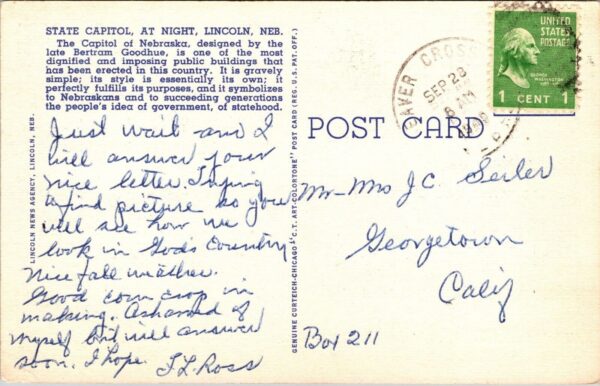 STATE CAPITOL, AT NIGHT, LINCOLN, NEB.
The Capitol of Nebraska, designed by the
late Bertram Goodhue, is one of the most
dignified and imposing public buildings that
has been erected in this country. It is gravely
simple; its style is essentially its own; it
perfectly fulfills its purposes, and it symbolizes
to Nebraskans and to succeeding generations
the people's idea of government, of statehood.
Just wait and I
will answer your
nice letter. Trying
to find picture so you
will see how we
look in God's Country
Nice fall weather.
Good corn crop in
making. Ashamed of
myself but will answer
soon. I hope. T.L. Ross
LINCOLN NEWS AGENCY, LINCOLN, NEB.
GENUINE CURTEICH-CHICAGO "C.T. ART-COLORTONE" POST CARD (REG. U.S. PAT. OFF.)
POST CARD
BEAVER CROSS
SEP 28
8 AM
UNITED
STATES
POSTAGE
GEORGE
WASHINGTON
1 CENT 1
Mr-Mrs J C. Seiler
Georgetown
Calif
Box 211